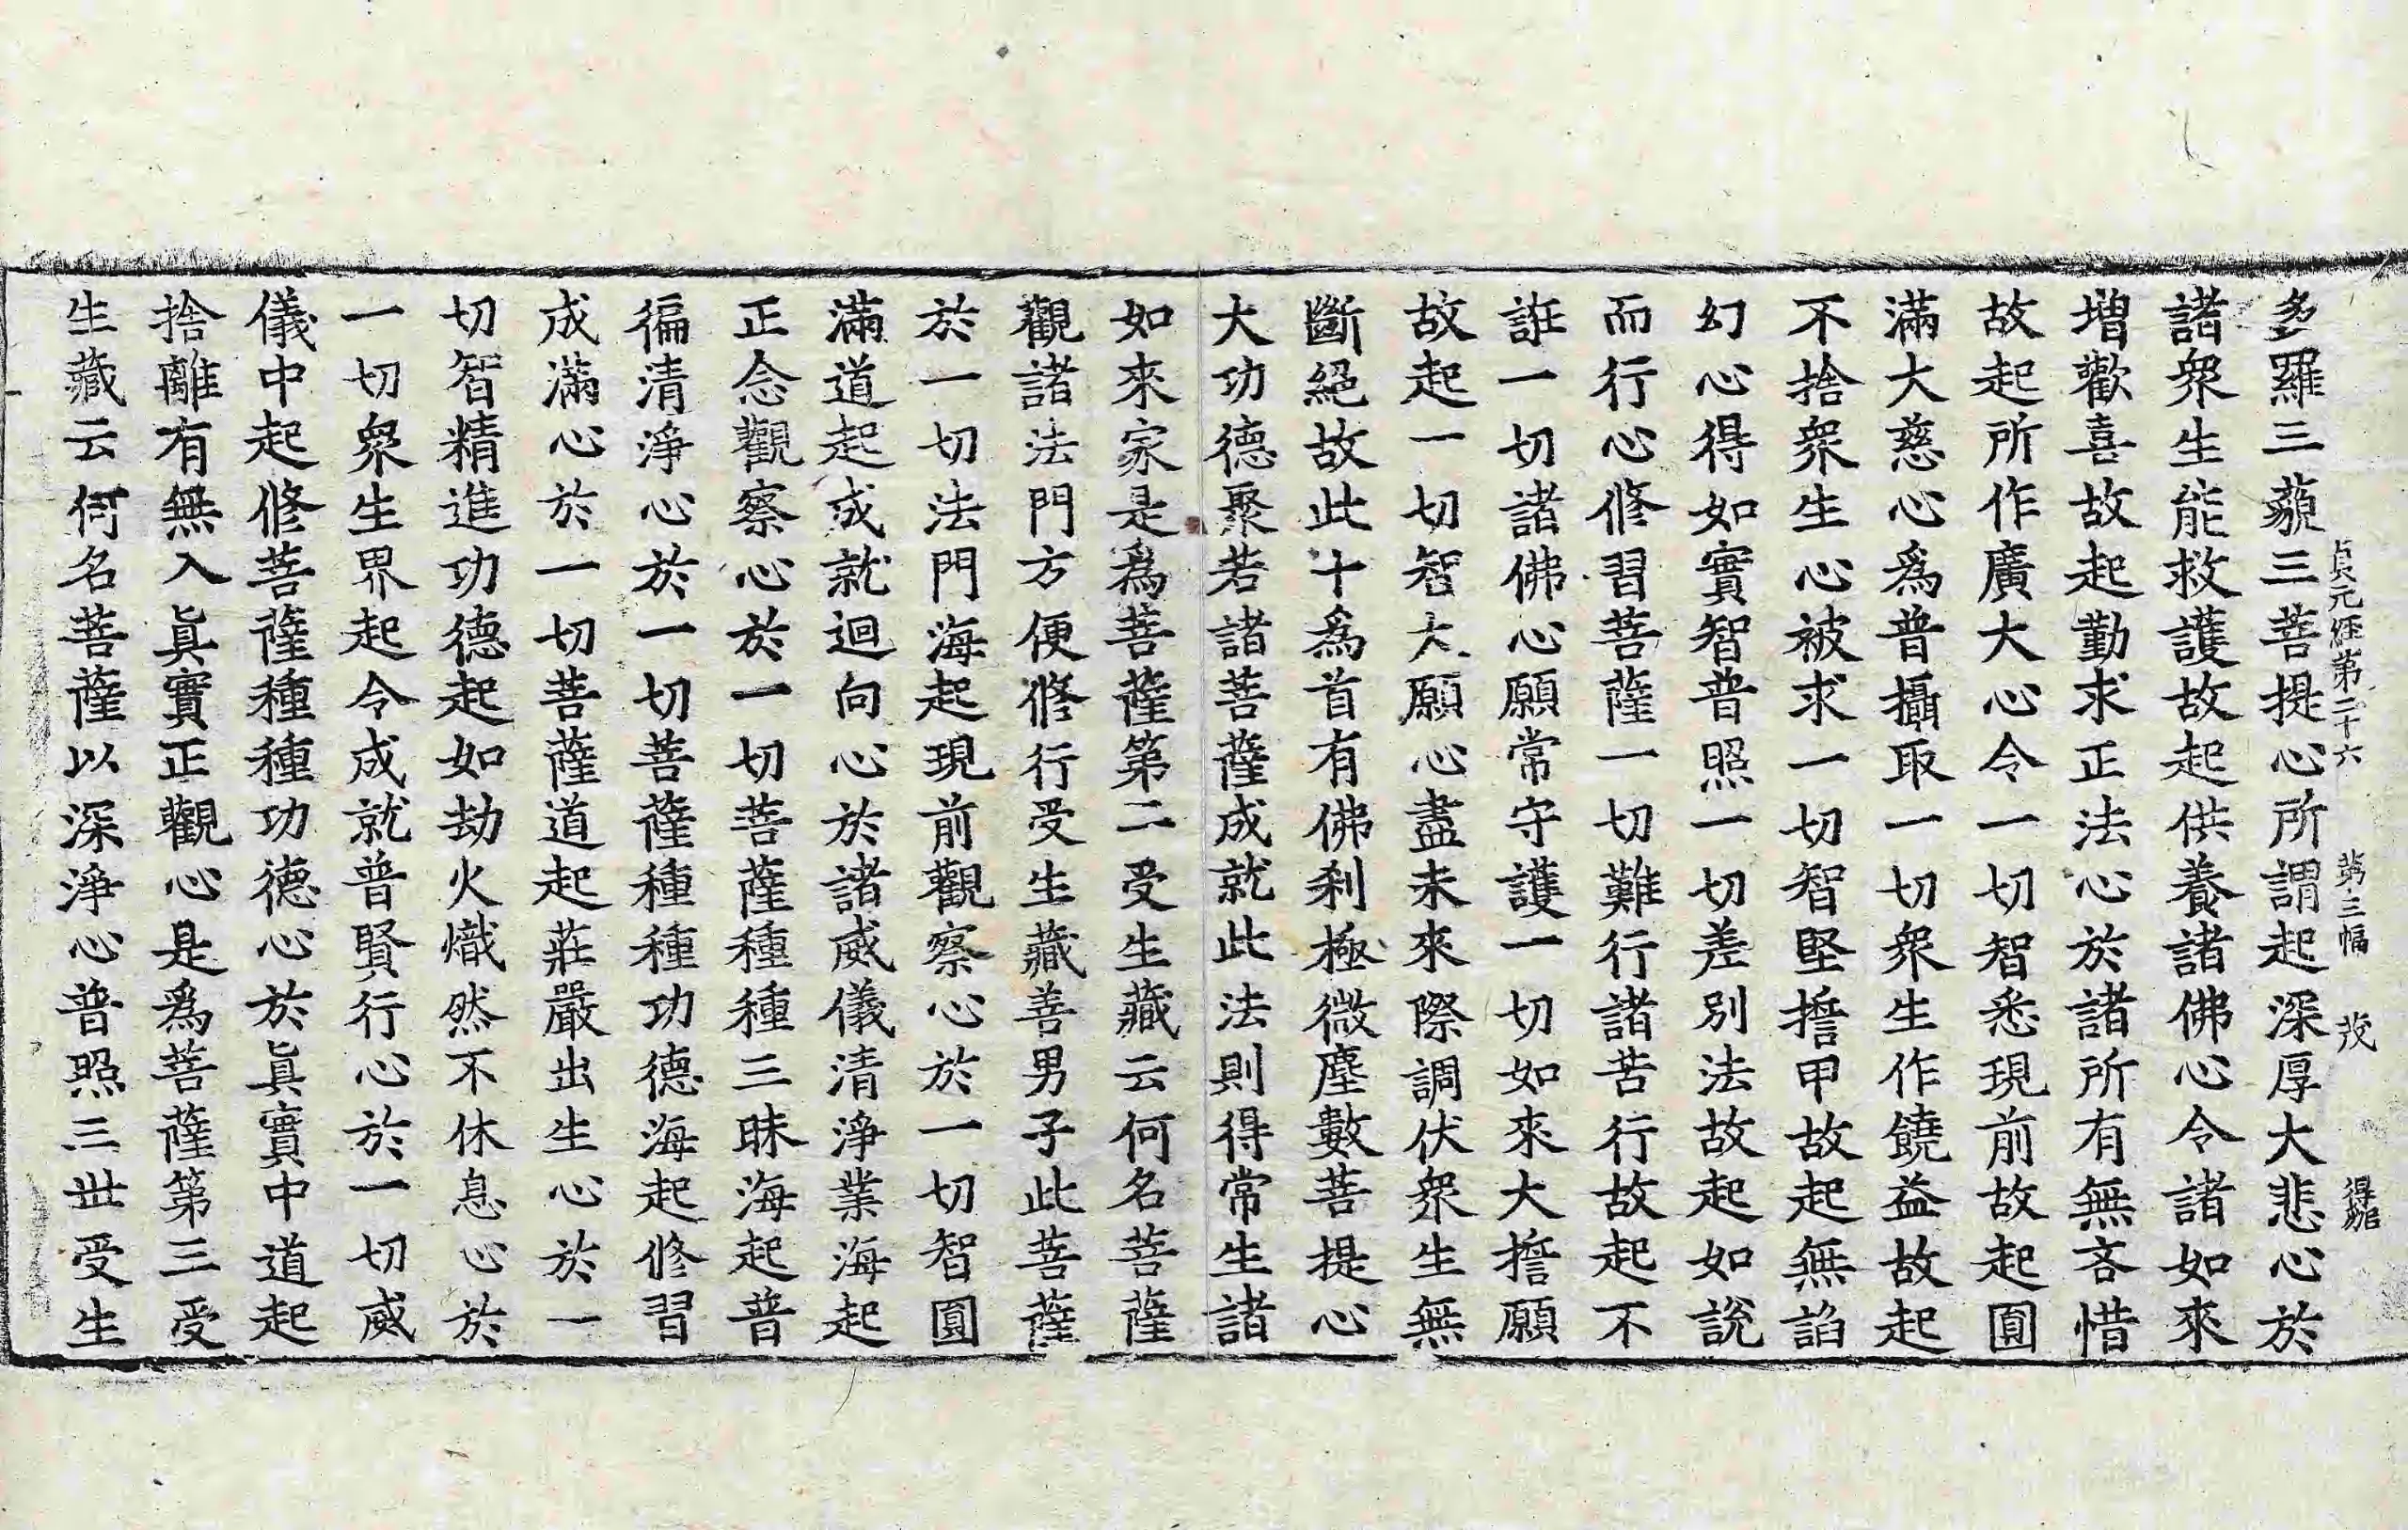 貞元經第二十六 第三幅 茂
多羅三藐三菩提心所謂起深厚大悲心於
諸衆生能救護故起供養諸佛心令諸如來
增歡喜故起勤求正法心於諸所有無吝惜
故起所作廣大心令一切智悉現前故起圓
滿大慈心爲普攝取一切衆生作饒益故起
不捨衆生心被求一切智堅擔甲故起無諂
幻心得如實智普照一切差別法故起如說
而行心修習菩薩一切難行諸苦行故起不
誑一切諸佛心願常守護一切如來大擔願
故起一切智大願心盡未來際調伏衆生無
斷絕故此十爲首有佛刹極微塵數菩提心
大功德聚若諸菩薩成就此法則得常生諸
如來家是爲菩薩第二受生藏云何名菩薩
觀諸法門方便修行受生藏善男子此菩薩
於一切法門海起現前觀察心於一切智圓
滿道起成就迴向心於諸威儀清淨業海起
正念觀察心於一切菩薩種種三昧海起普
徧清淨心於一切菩薩種種功德海起修習
成滿心於一切菩薩道起莊嚴出生心於一
切智精進功德起如劫火熾然不休息心於
一切衆生界起令成就普賢行心於一切威
儀中起修菩薩種種功德心於眞實中道起
捨離有無入眞實正觀心是爲菩薩第三受
生藏云何名菩薩以深淨心普照三世受生